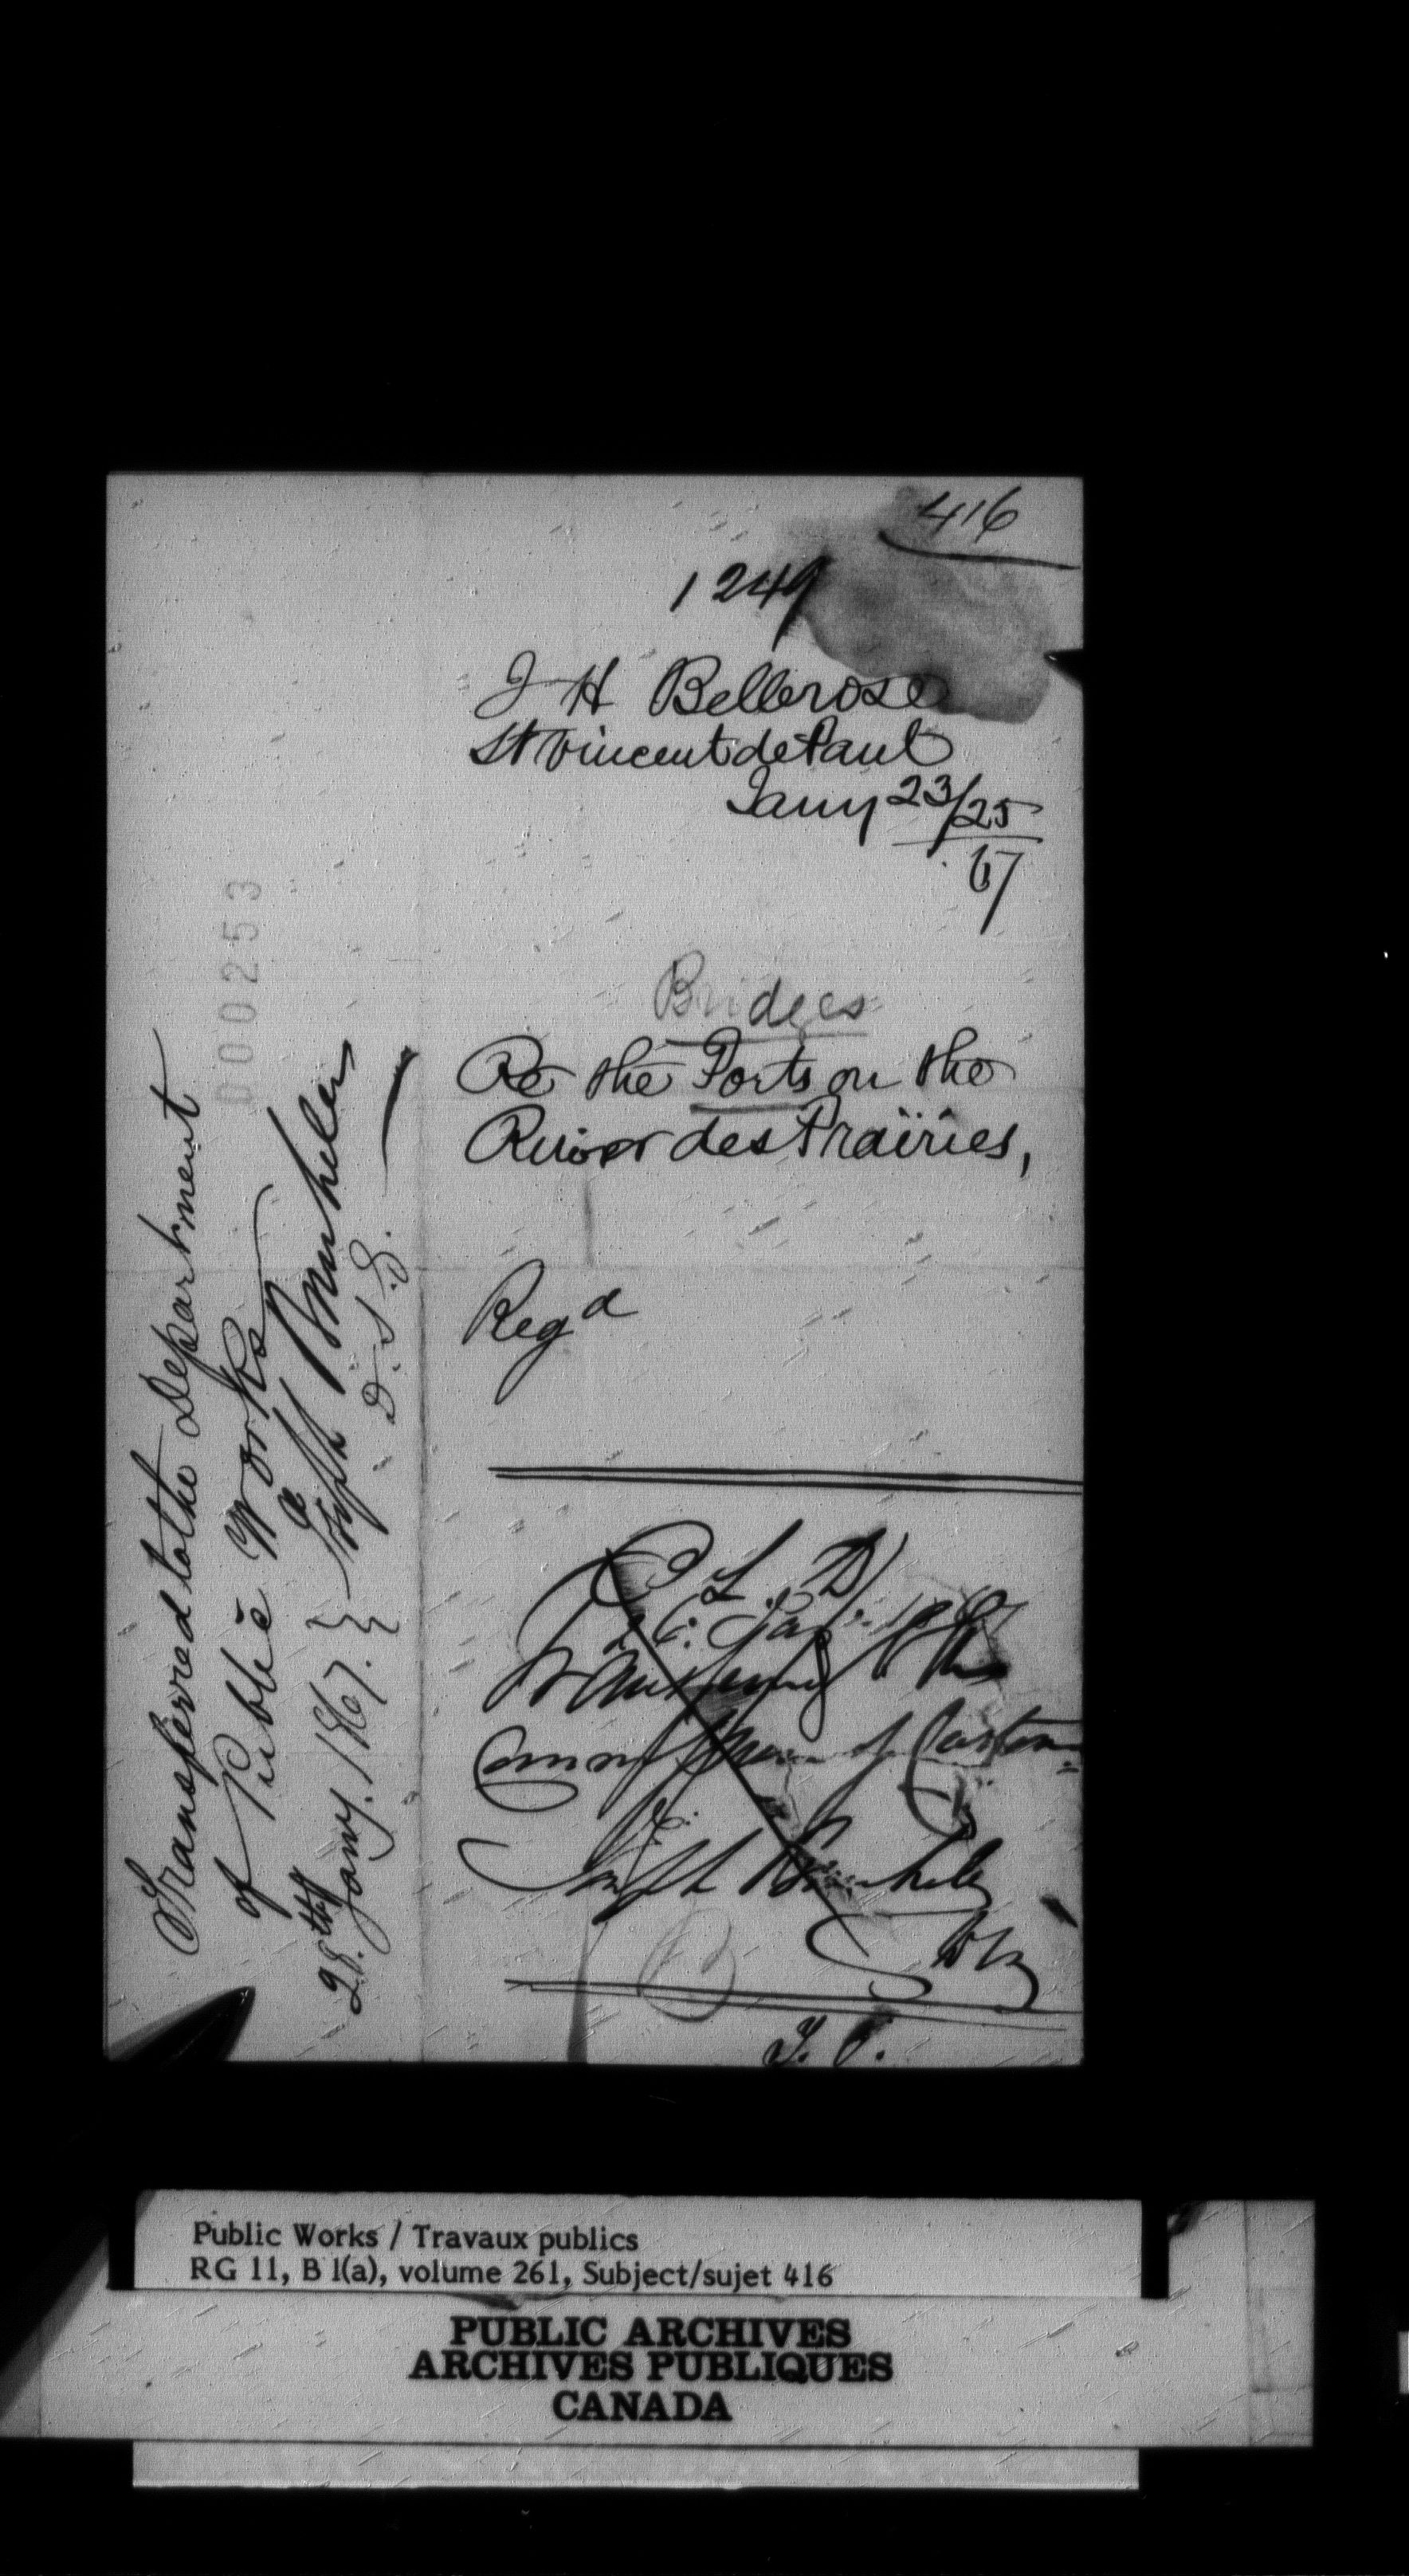 416
1249
J H Bellerose
St Vincent de Paul
Jany 23/25
67
Bridges
Re the Ports on the
River des Prairies,
Regd
C. L. D.
to the
Joseph
T. O.
Transferred to the Department
of Public Works
28th Jany. 1867. } Joseph
D. S. G.
000253
Public Works / Travaux publics
RG 11, B 1(a), volume 261, Subject/sujet 416
PUBLIC ARCHIVES
ARCHIVES PUBLIQUES
CANADA